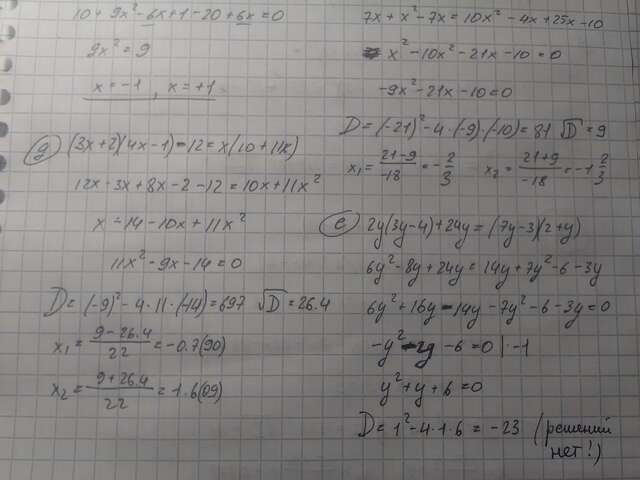 10 + 9x² - 6x + 1 - 20 + 6x = 0
9x² = 9
x = -1, x = +1
д) (3x+2)(4x-1) - 12 = x(10 + 11x)
12x - 3x + 8x - 2 - 12 = 10x + 11x²
x - 14 - 10x + 11x²
11x² - 9x - 14 = 0
D = (-9)² - 4 · 11 · (-14) = 697 √D = 26.4
x₁ = (9 - 26.4)/22 = -0.7(90)
x₂ = (9 + 26.4)/22 = 1.6(09)
7x + x² - 7x = 10x² - 4x + 25x - 10
x² - 10x² - 21x - 10 = 0
-9x² - 21x - 10 = 0
D = (-21)² - 4 · (-9) · (-10) = 81 √D = 9
x₁ = (21 - 9)/-18 = -2/3 x₂ = (21 + 9)/-18 = -1 2/3
е) 2y(3y-4) + 24y = (7y-3)(2+y)
6y² - 8y + 24y = 14y + 7y² - 6 - 3y
6y² + 16y - 14y - 7y² - 6 - 3y = 0
-y² - y - 6 = 0 | · -1
y² + y + 6 = 0
D = 1² - 4 · 1 · 6 = -23 (решений
нет!)